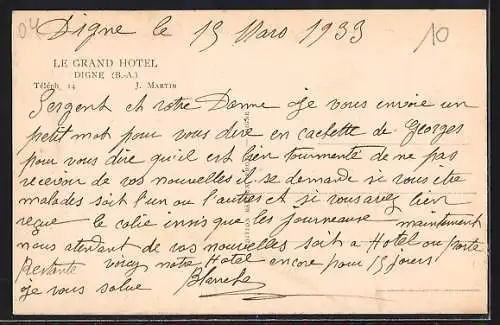 04
Digne le 15 Mars 1933
10
LE GRAND HOTEL
DIGNE (B.-A.)
Téléph. 14 J. MARTIN
Sergent et votre Damme je vous envoie un
petit mot pour vous dire en cachette de Georges
pour vous dire qu'il est bien tourmente de ne pas
recevoir de vos nouvelles il se demande si vous etre
malades soit l'un ou l'autres et si vous aviez bien
reçue le colie insis que les journeause maintement
nous attendant de vos nouvelles soit a Hotel ou poste
Restante voisy notre Hotel encore pour 15 jours
je vous salue Blanche